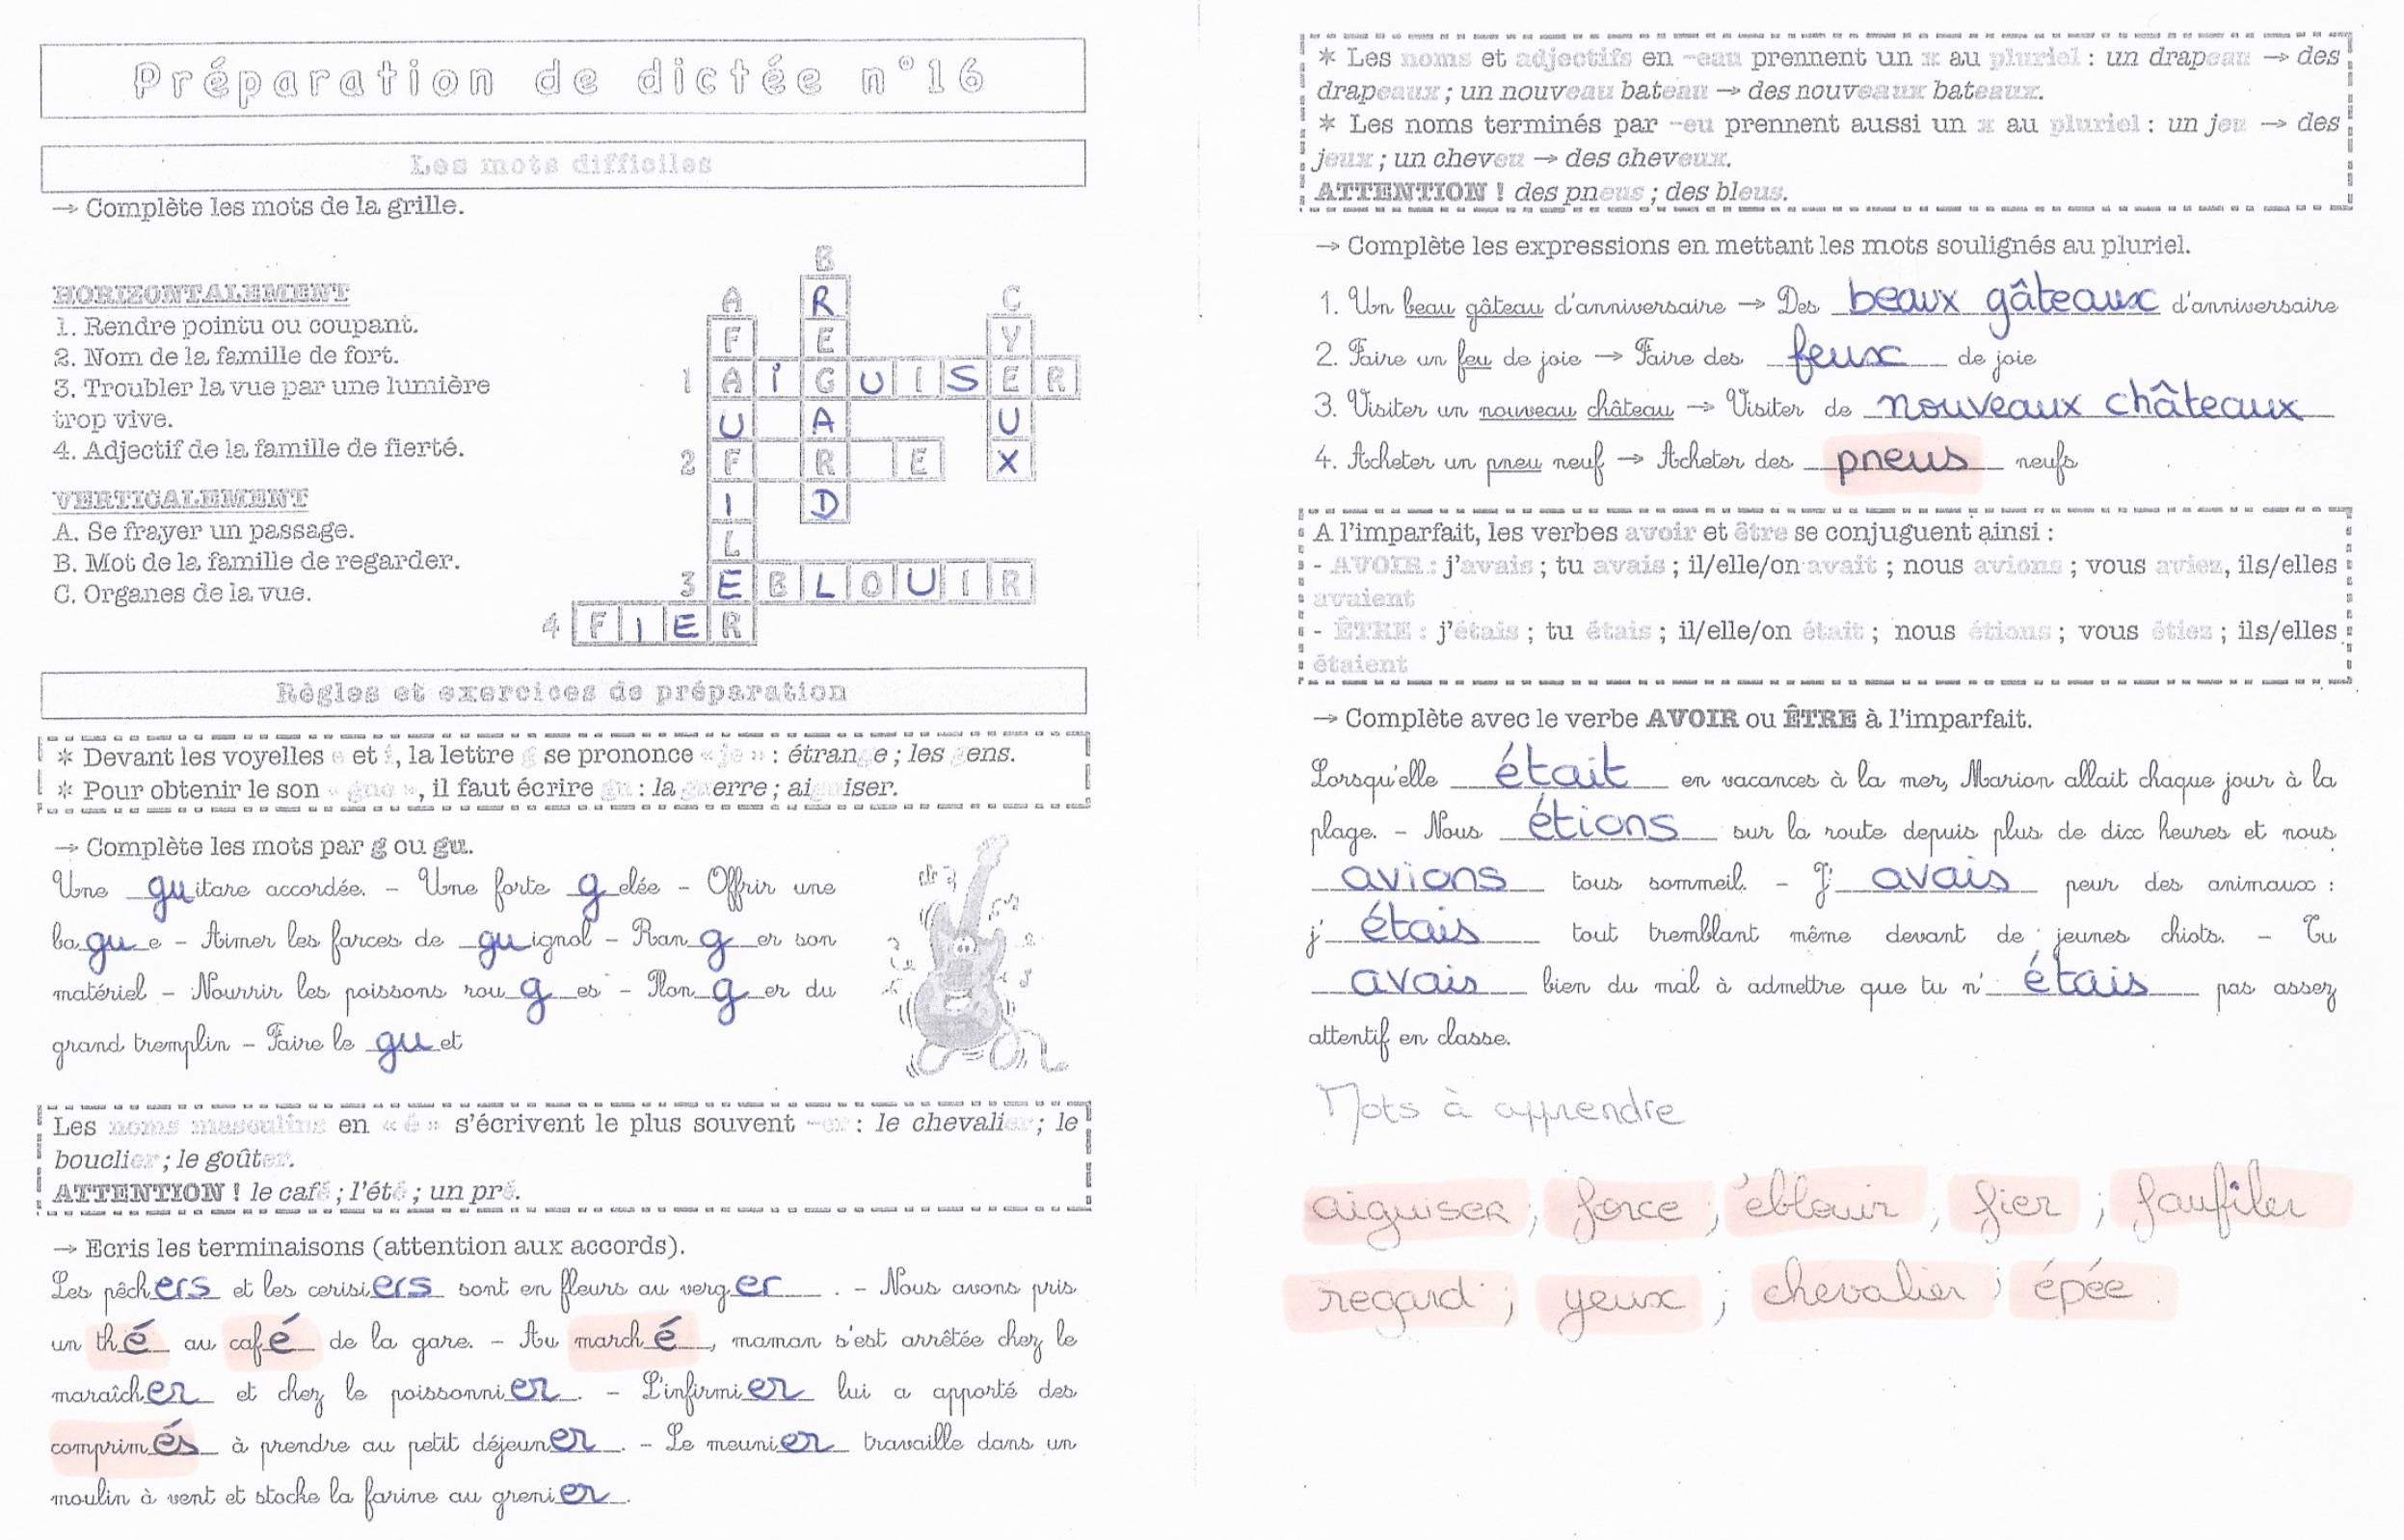 Préparation de dictée n°16
Les mots difficiles
→ Complète les mots de la grille.
HORIZONTALEMENT
1. Rendre pointu ou coupant.
2. Nom de la famille de fort.
3. Troubler la vue par une lumière
trop vive.
4. Adjectif de la famille de fierté.
VERTICALEMENT
A. Se frayer un passage.
B. Mot de la famille de regarder.
C. Organes de la vue.
B
A R C
F E Y
1 A i G U I S E R
U A U
2 F R E X
I D
L
3 E B L O U I R
4 F I E R
Règles et exercices de préparation
* Devant les voyelles e et i, la lettre g se prononce « je » : étrange ; les gens.
* Pour obtenir le son « gue », il faut écrire gu : la guerre ; aiguiser.
→ Complète les mots par g ou gu.
Une guitare accordée. – Une forte gelée – Offrir une
bague – Aimer les farces de guignol – Ranger son
matériel – Nourrir les poissons rouges – Plonger du
grand tremplin – Faire le guet
Les noms masculins en « é » s'écrivent le plus souvent -er : le chevalier ; le
bouclier ; le goûter.
ATTENTION ! le café ; l'été ; un pré.
→ Ecris les terminaisons (attention aux accords).
Les pêchers et les cerisiers sont en fleurs au verger . – Nous avons pris
un thé au café de la gare. – Au marché, maman s'est arrêtée chez le
maraîcher et chez le poissonnier. – L'infirmier lui a apporté des
comprimés à prendre au petit déjeuner. – Le meunier travaille dans un
moulin à vent et stocke la farine au grenier.
* Les noms et adjectifs en -eau prennent un x au pluriel : un drapeau → des
drapeaux ; un nouveau bateau → des nouveaux bateaux.
* Les noms terminés par -eu prennent aussi un x au pluriel : un jeu → des
jeux ; un cheveu → des cheveux.
ATTENTION ! des pneus ; des bleus.
→ Complète les expressions en mettant les mots soulignés au pluriel.
1. Un beau gâteau d'anniversaire → Des beaux gâteaux d'anniversaire
2. Faire un feu de joie → Faire des feux de joie
3. Visiter un nouveau château → Visiter de nouveaux châteaux
4. Acheter un pneu neuf → Acheter des pneus neufs
A l'imparfait, les verbes avoir et être se conjuguent ainsi :
- AVOIR : j'avais ; tu avais ; il/elle/on avait ; nous avions ; vous aviez, ils/elles
avaient
- ÊTRE : j'étais ; tu étais ; il/elle/on était ; nous étions ; vous étiez ; ils/elles
étaient
→ Complète avec le verbe AVOIR ou ÊTRE à l'imparfait.
Lorsqu'elle était en vacances à la mer, Marion allait chaque jour à la
plage. – Nous étions sur la route depuis plus de dix heures et nous
avions tous sommeil. – J' avais peur des animaux :
j' étais tout tremblant même devant de jeunes chiots. – Tu
avais bien du mal à admettre que tu n' étais pas assez
attentif en classe.
Mots à apprendre
aiguiser ; force ; éblouir ; fier ; faufiler
regard ; yeux ; chevalier ; épée.